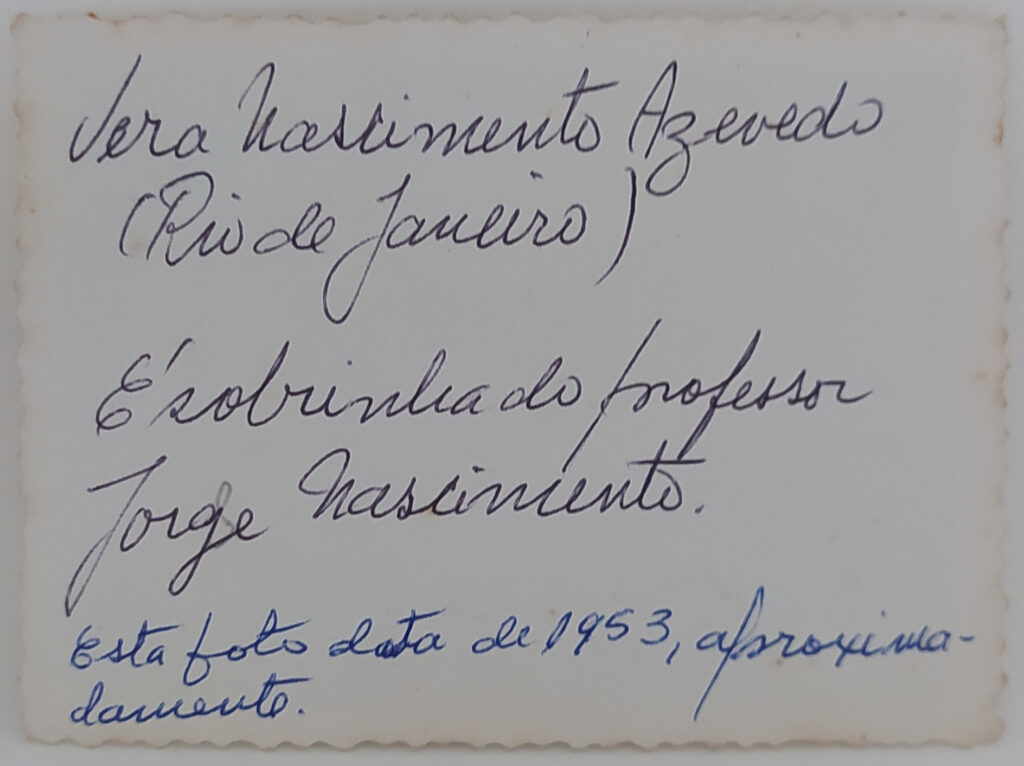 Vera Nascimento Azevedo
(Rio de Janeiro)
É sobrinha do professor
Jorge Nascimento.
Esta foto data de 1953, aproxima-
damente.